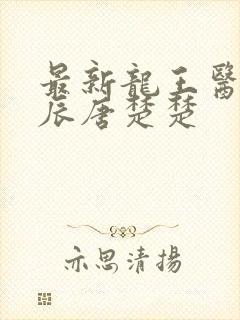 最新龍王醫
辰唐楚楚
亦思清揚